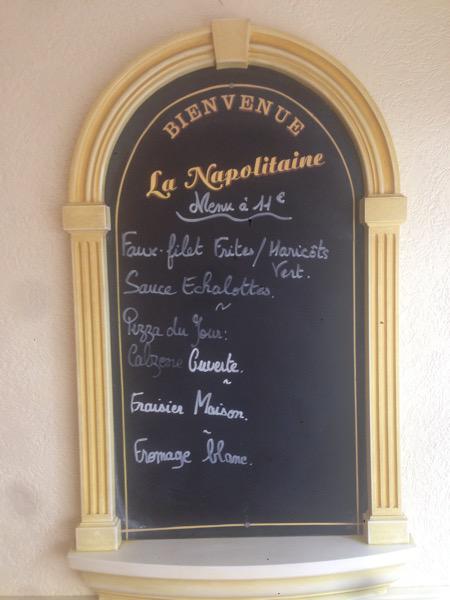 BIENVENUE
La Napolitaine
Menu à 11€
Faux-filet Frites/Haricôts
Vert.
Sauce Echalottes.
~
Pizza du Jour:
Calzone Ouverte.
~
Fraisier Maison.
~
Fromage blanc.